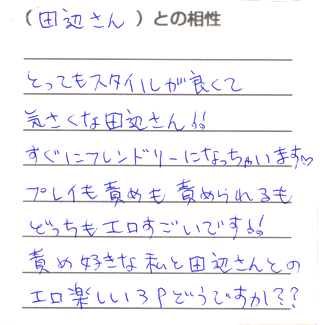 （田辺さん）との相性
とってもスタイルが良くて
気さくな田辺さん!!
すぐにフレンドリーになっちゃいます♡
プレイも責めも責められるも
どっちもエロすごいです!!
責め好きな私と田辺さんとの
エロ楽しい3Pどうですか??